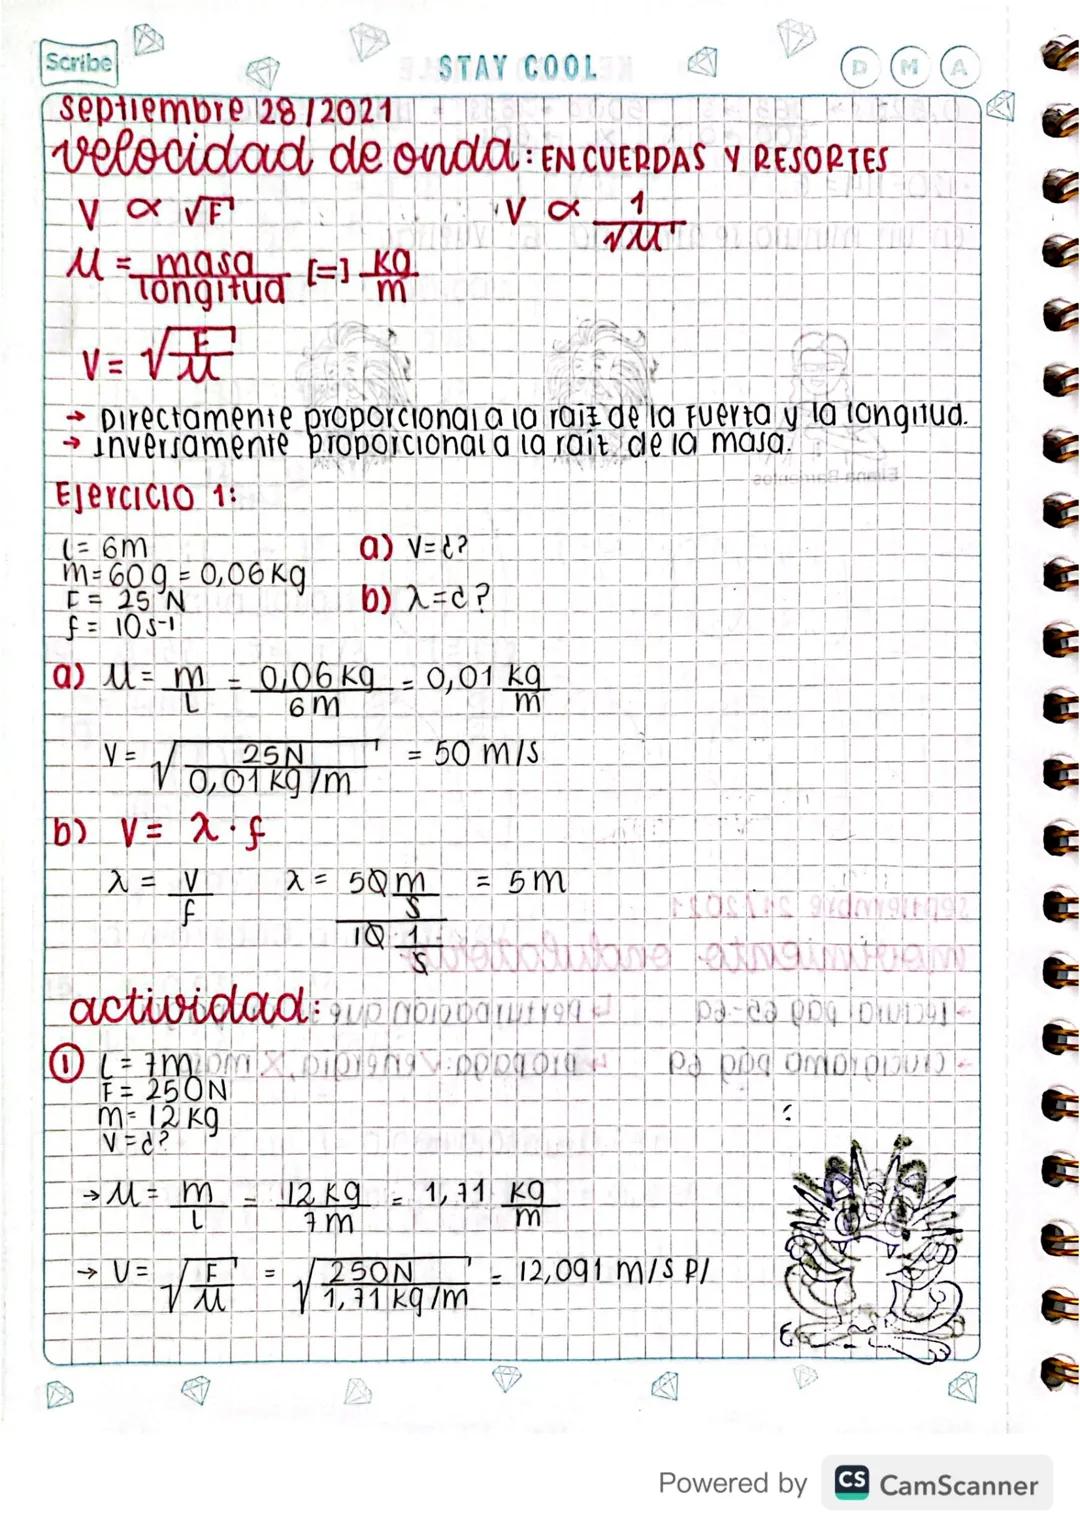 Scribe
STAY COOL
D M A
septiembre 28/2021
velocidad de onda: EN CUERDAS Y RESORTES
V ∝ √F V ∝ 1/√μ
μ = masa/longitud [=] kg/m
V = √(F/μ)
→ Directamente proporcional a la raíz de la fuerza y la longitud.
→ Inversamente proporcional a la raíz de la masa.
Ejercicio 1:
l = 6m a) V=¿?
m = 60g = 0,06 kg
F = 25 N b) λ=¿?
f = 10 s-1
a) μ = m/L = 0,06 kg/6 m = 0,01 kg/m
V = √(25N/0,01 kg/m) = 50 m/s
b) V = λ · f
λ = V/f λ = 50 m/s / 10 1/s = 5m
actividad:
① L = 7m
F = 250N
m = 12 kg
V = ¿?
→ μ = m/L = 12 kg/7 m = 1,71 kg/m
→ V = √(F/μ) = √(250N/1,71 kg/m) = 12,091 m/s R/
Powered by CS CamScanner